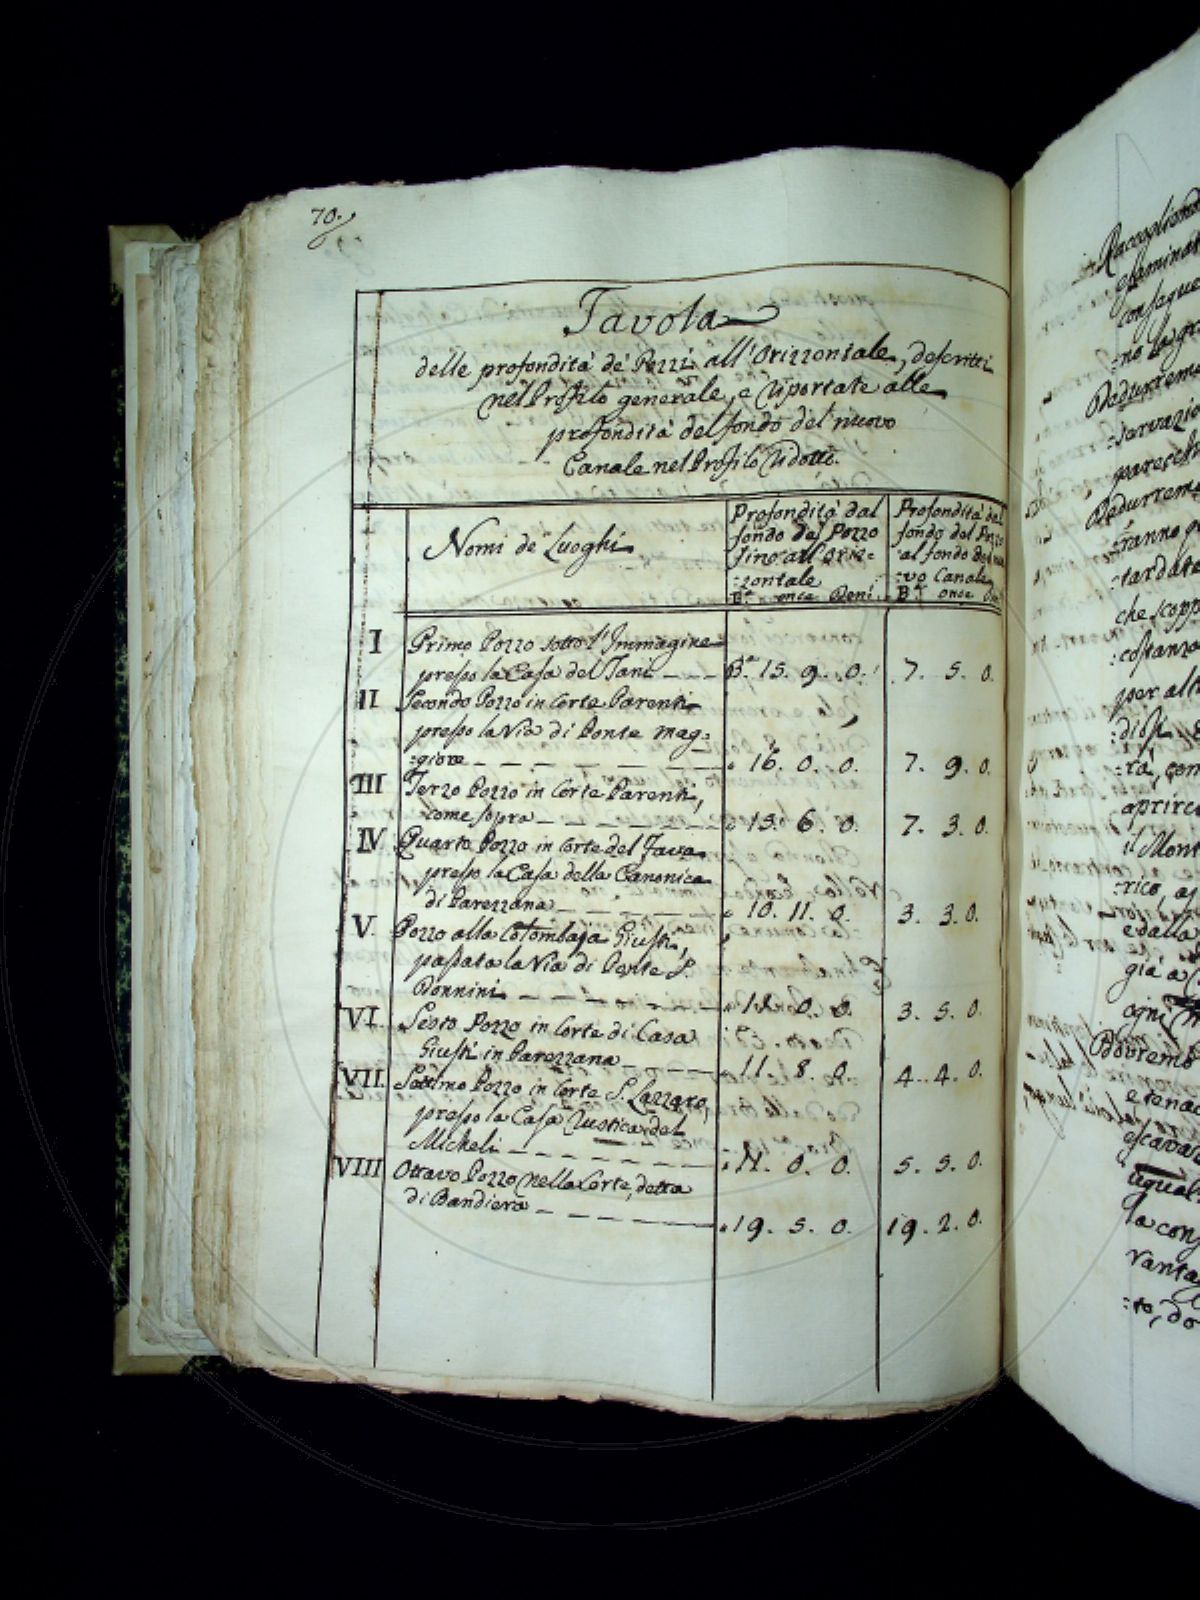 70.
Tavola
delle profondità de' Pozzi all'Orizzontale, descritti
nel Profilo generale, e riportate alle
profondità del fondo del nuovo
Canale nel Profilo ridotto.
Nomi de' Luoghi
Profondità dal
fondo del Pozzo
fino all'Oriz=
=zontale
B.a once Deni
Profondità dal
fondo del Pozzo
al fondo del nuo
=vo Canale
B.a once
I Primo Pozzo sotto l'Immagine
presso la Casa del Tani - - - B.a 15. 9. 0. 7. 5. 0.
II Secondo Pozzo in Corte Parenti
presso la Via di Ponte mag=
=giore - - - - - - " 16. 0. 0. 7. 9. 0.
III Terzo Pozzo in Corte Parenti,
come sopra - - - - - - " 15. 6. 0. 7. 3. 0.
IV Quarto Pozzo in Corte del Fava
presso la Casa della Canonica
di Parezzana - - - - - " 10. 11. 0. 3. 3. 0.
V. Pozzo alla Colombaja Giusti,
passata la Via di Ponte S.
Donnini - - - - - - " 11. 0. 0. 3. 5. 0.
VI. Sesto Pozzo in Corte di Casa
Giusti in Parezzana - - - - " 11. 8. 0. 4. 4. 0.
VII. Settimo Pozzo in Corte S. Lazzaro,
presso la Casa rustica del
Micheli - - - - - - - " 11. 0. 0. 5. 5. 0.
VIII Ottavo Pozzo nella Corte, detta
di Bandiera - - - - - - " 19. 5. 0. 19. 2. 0.
Raccogliend
esaminat
=no la gr
Dedurremo
=servazio
parecchi
Dedurremo
=ranno p
=tardate
che scopp
=costanza
per alt
=rà, con
aprire
il Mont
=rico, a
e dalla
già a
ogni
Dovremo
e tenac
escavaz
ugual
la cons
vanta
=to, do